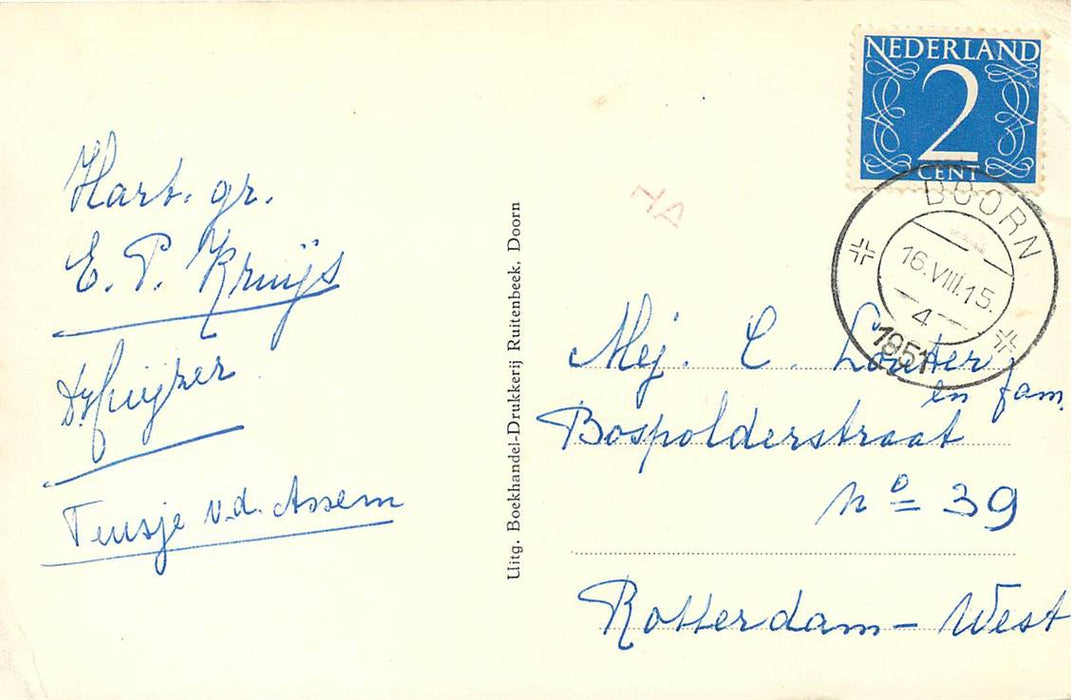 Hart. gr.
E. P. Kruijs
Teusje v.d. Assem
Uitg. Boekhandel-Drukkerij Ruitenbeek, Doorn
HA
NEDERLAND
2
CENT
DOORN
16.VIII.15.
4
1951
Mej. C. Louter
en fam.
Bospolderstraat
No 39
Rotterdam - West